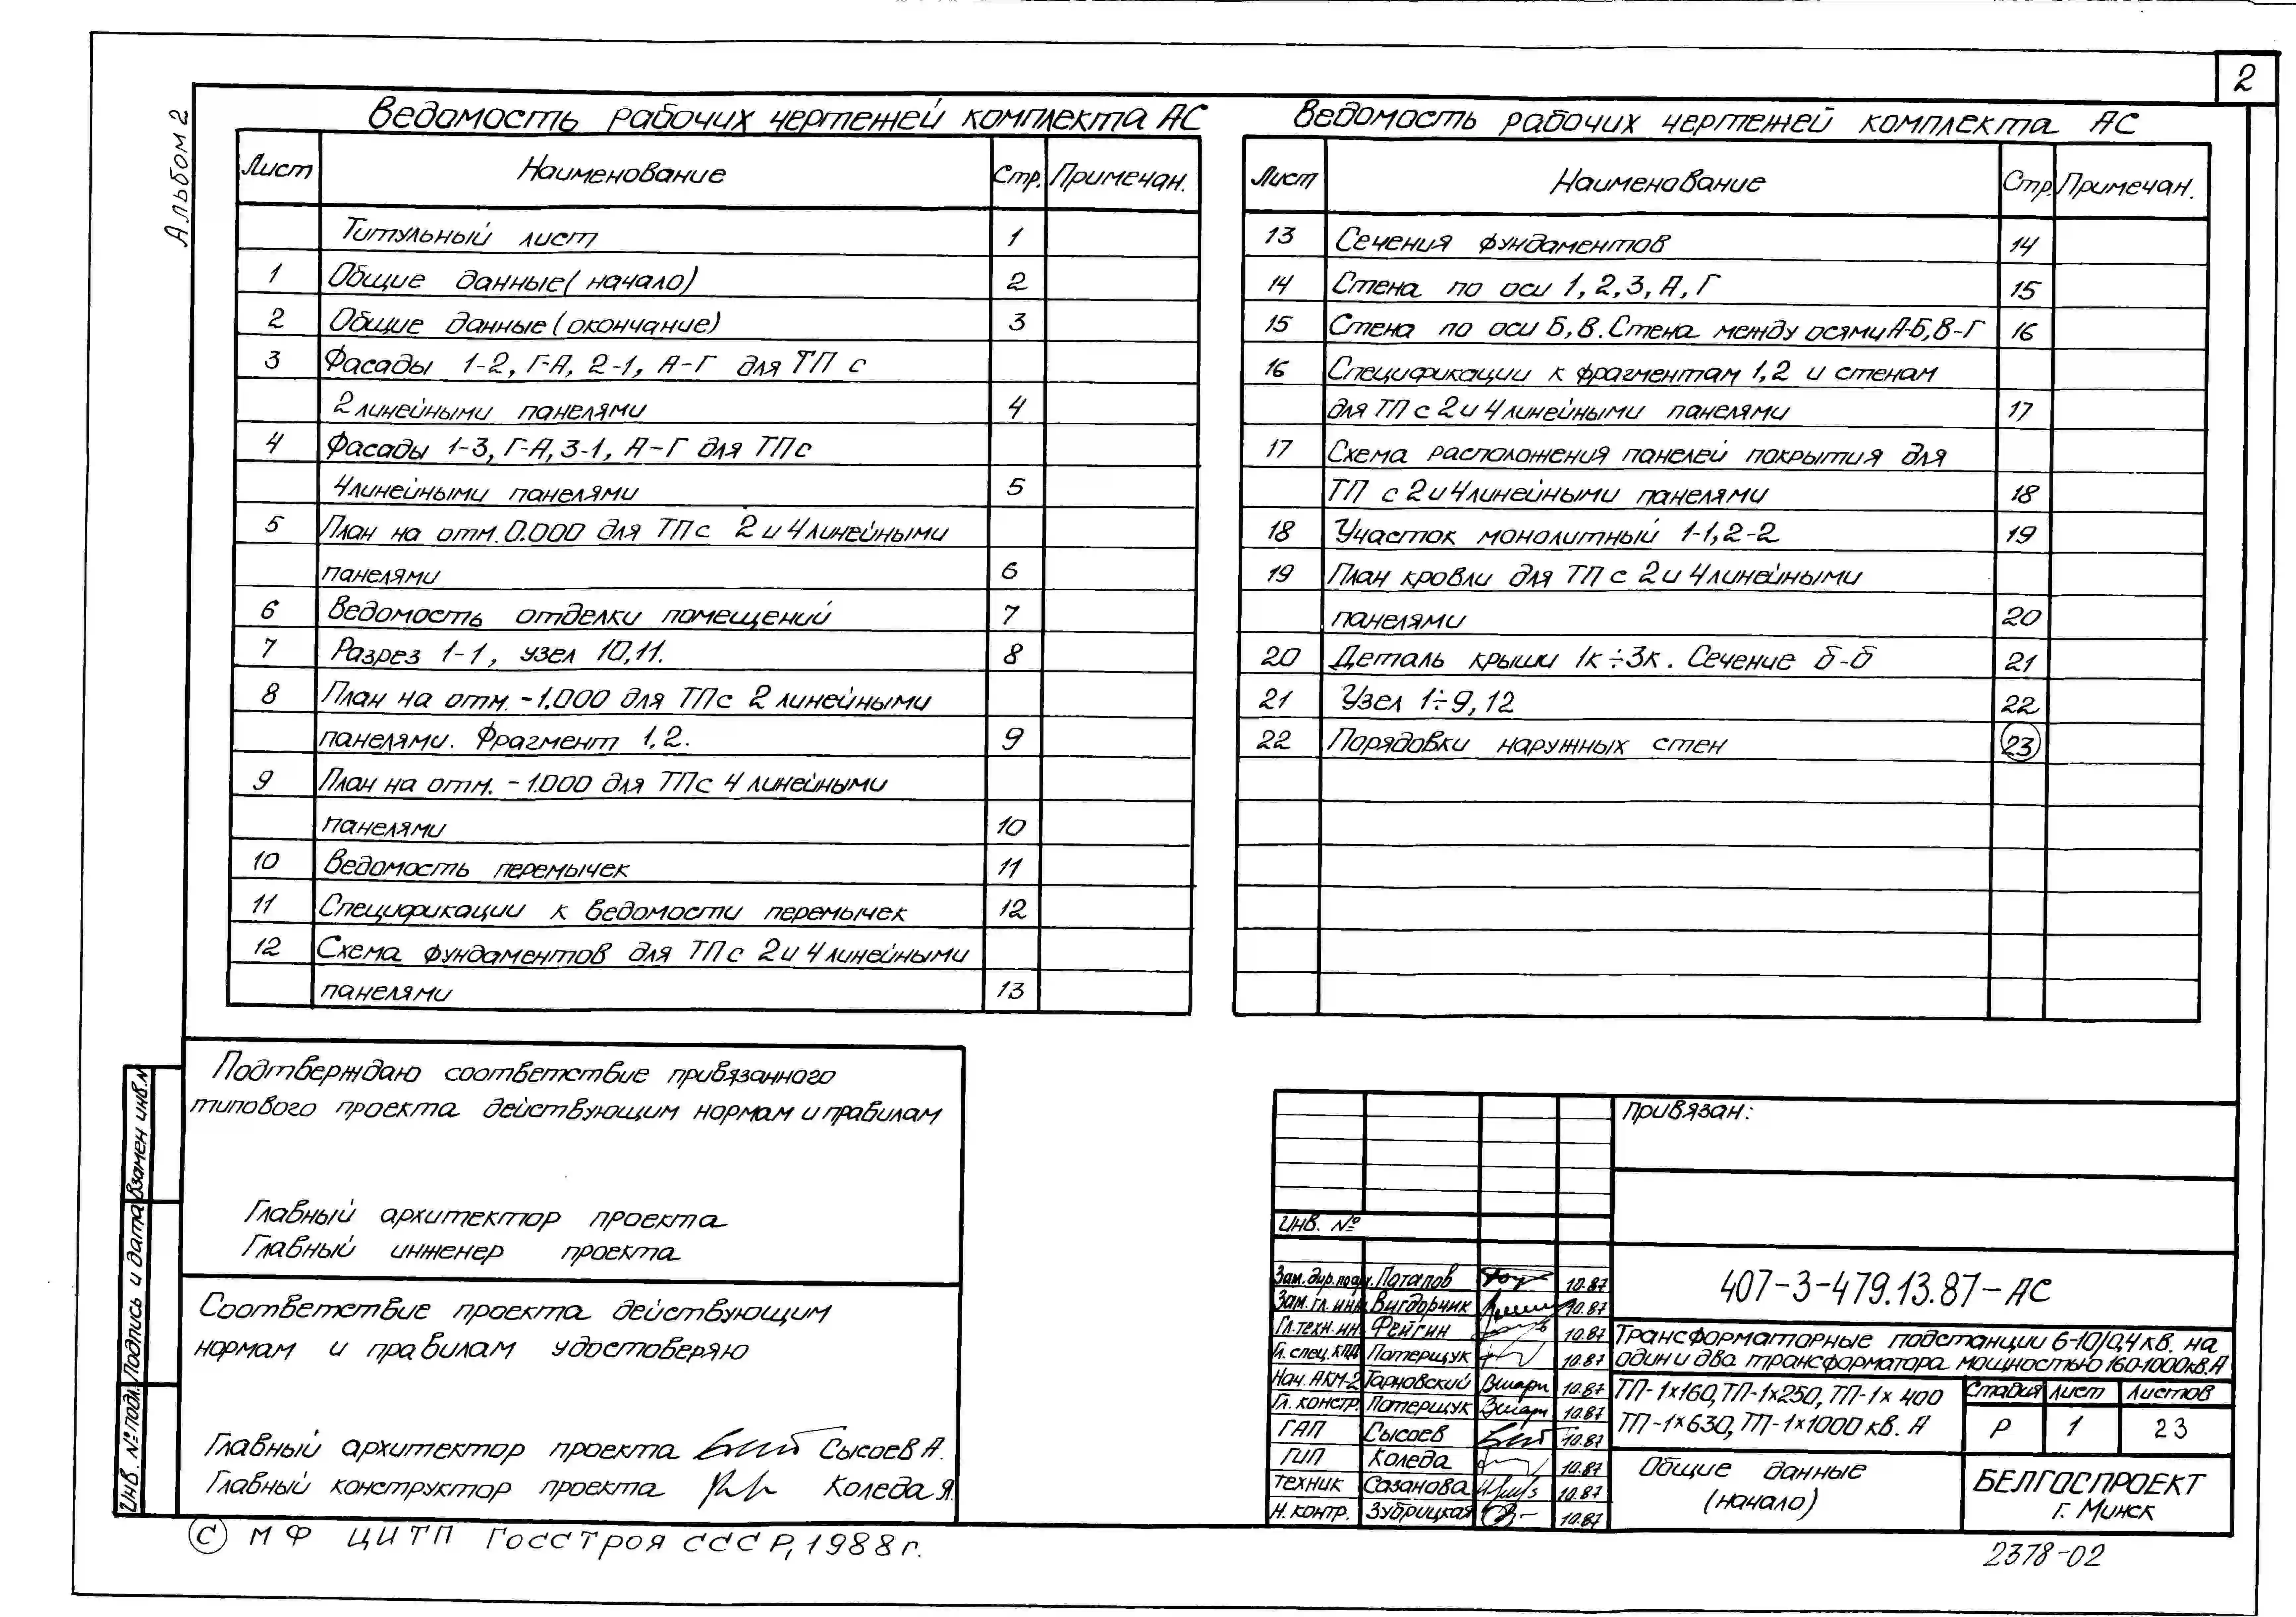 2
Альбом 2
Ведомость рабочих чертежей комплекта АС
Лист Наименование Стр. Примечан.
Титульный лист 1
1 Общие данные (начало) 2
2 Общие данные (окончание) 3
3 Фасады 1-2, Г-А, 2-1, А-Г для ТП с
2 линейными панелями 4
4 Фасады 1-3, Г-А, 3-1, А-Г для ТП с
4 линейными панелями 5
5 План на отм. 0.000 для ТП с 2 и 4 линейными
панелями 6
6 Ведомость отделки помещений 7
7 Разрез 1-1, узел 10, 11. 8
8 План на отм. -1.000 для ТП с 2 линейными
панелями. Фрагмент 1.2. 9
9 План на отм. -1.000 для ТП с 4 линейными
панелями 10
10 Ведомость перемычек 11
11 Спецификации к ведомости перемычек 12
12 Схема фундаментов для ТП с 2 и 4 линейными
панелями 13
Ведомость рабочих чертежей комплекта АС
Лист Наименование Стр. Примечан.
13 Сечения фундаментов 14
14 Стена по оси 1, 2, 3, А, Г 15
15 Стена по оси Б, В. Стена между осями А-Б, В-Г 16
16 Спецификации к фрагментам 1, 2 и стенам
для ТП с 2 и 4 линейными панелями 17
17 Схема расположения панелей покрытия для
ТП с 2 и 4 линейными панелями 18
18 Участок монолитный 1-1, 2-2 19
19 План кровли для ТП с 2 и 4 линейными
панелями 20
20 Деталь крыши 1к÷3к. Сечение б-б 21
21 Узел 1÷9, 12 22
22 Порядовки наружных стен 23
Подтверждаю соответствие привязанного
типового проекта действующим нормам и правилам
Главный архитектор проекта
Главный инженер проекта
Соответствие проекта действующим
нормам и правилам удостоверяю
Главный архитектор проекта Сысоев А.
Главный конструктор проекта Коледа Я.
Взамен инв. №
Подпись и дата
Инв. № подл.
Привязан:
Инв. №
Зам. дир. по Потапов 10.87
Зам. гл. инж. Вигдорчик 10.87
Гл. техн. ин. Фейгин 10.87
Гл. спец. КПД Потерщук 10.87
Нач. АКМ-2 Тарновский 10.87
Гл. констр. Потерщук 10.87
ГАП Сысоев 10.87
ГИП Коледа 10.87
Техник Сазанова 10.87
Н. контр. Зубрицкая 10.87
407-3-479.13.87-АС
Трансформаторные подстанции 6-10/0,4 кв. на
один и два трансформатора мощностью 160-1000 кв.А
ТП-1х160, ТП-1х250, ТП-1х 400
ТП-1х630, ТП-1х1000 кв. А
Стадия Лист Листов
Р 1 23
Общие данные
(начало)
БЕЛГОСПРОЕКТ
г. Минск
© МФ ЦИТП Госстроя СССР, 1988 г.
2378-02